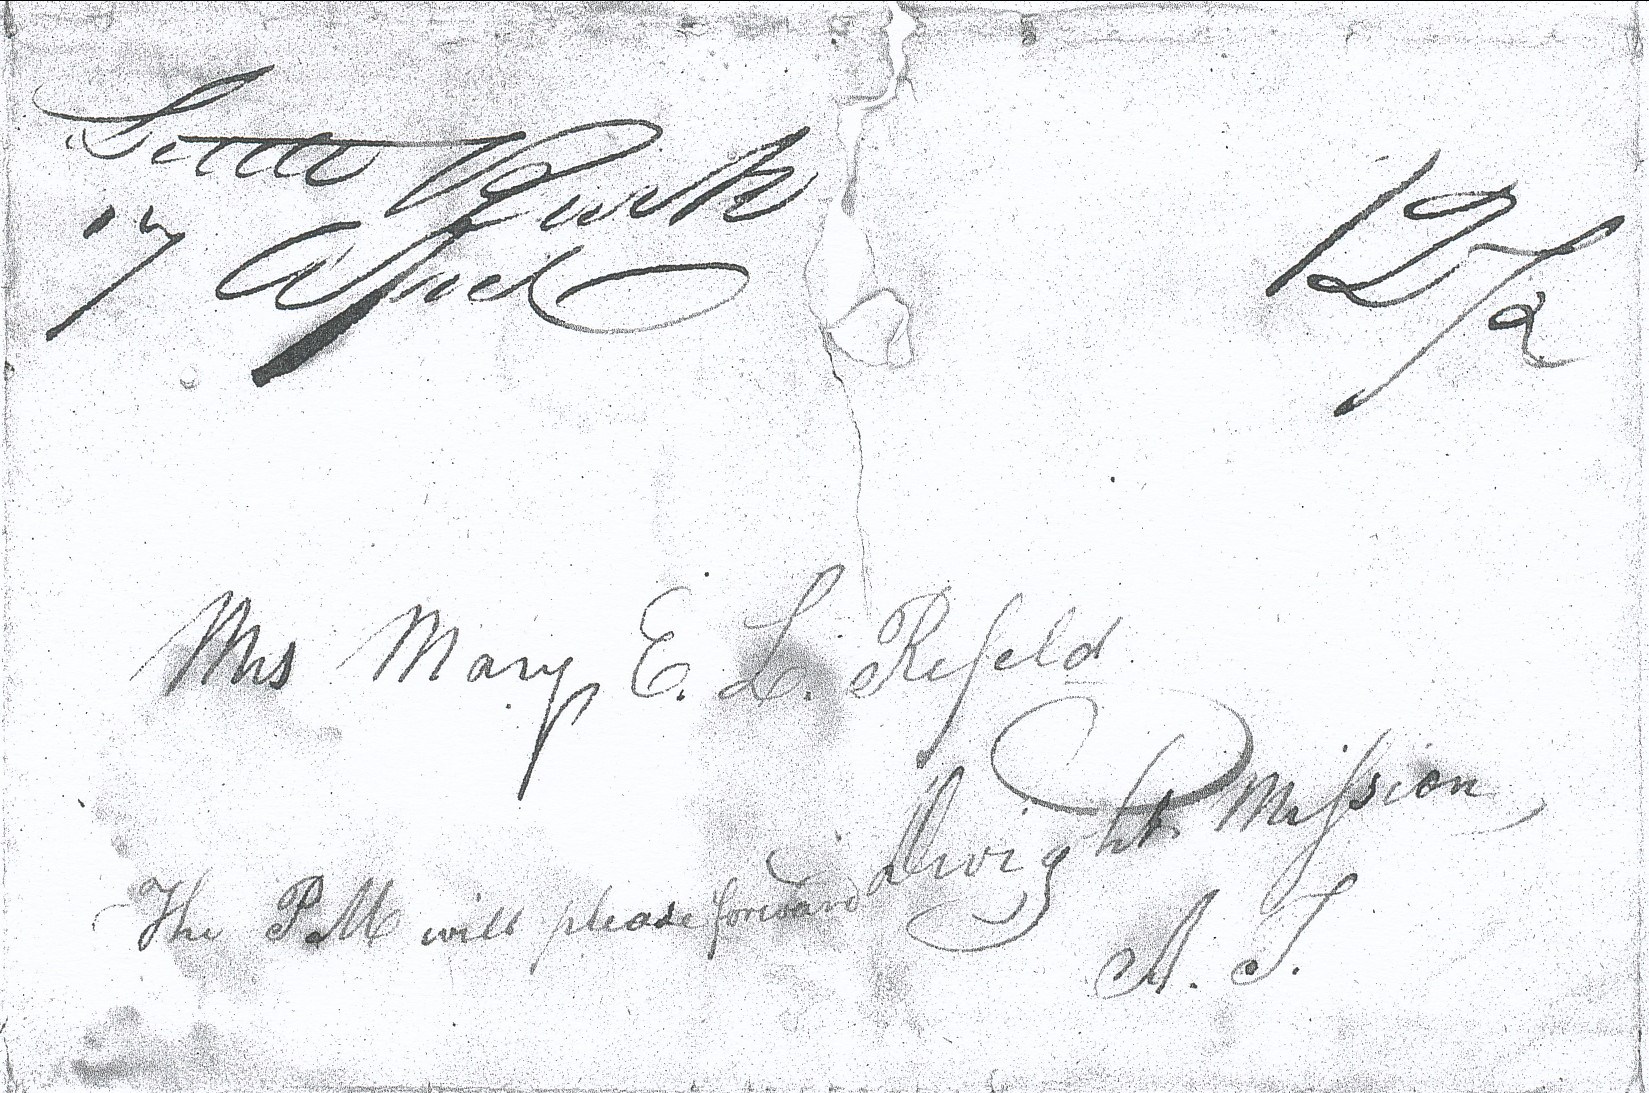 Little Rock
17 April
12 1/2
Mrs Mary E. L. Refeld
Dwight Mission
The P.M will please forward
A. T.